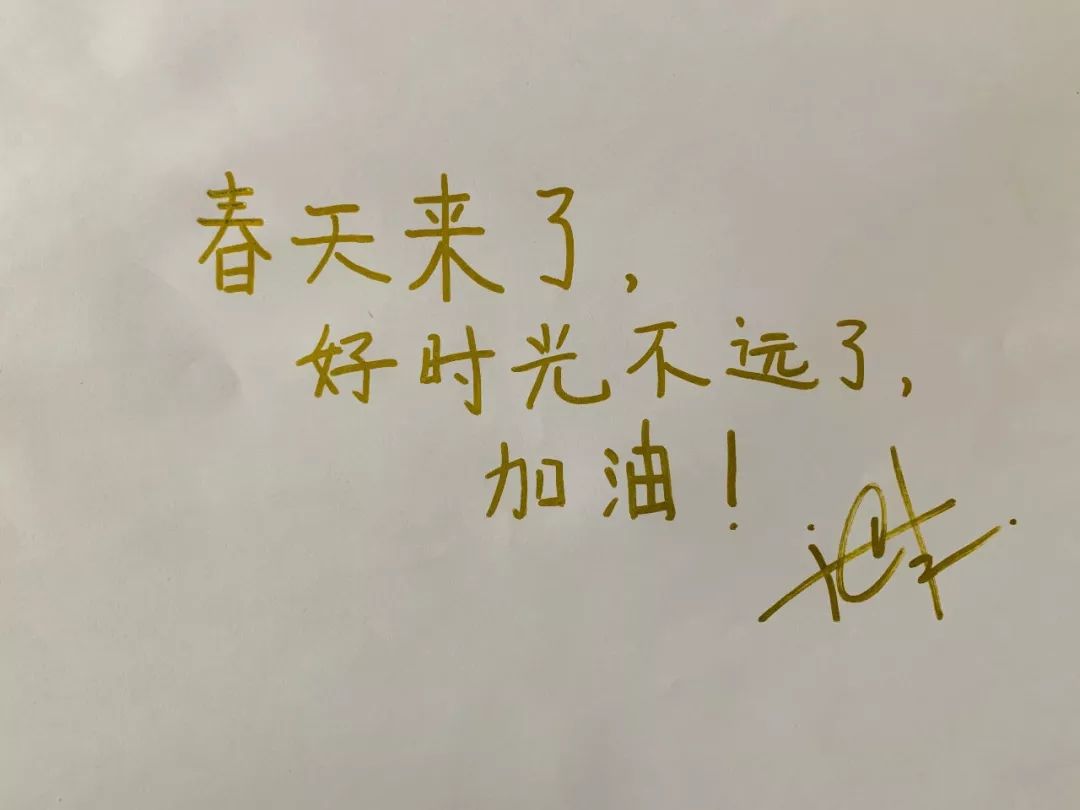 春天来了,
好时光不远了,
加油!